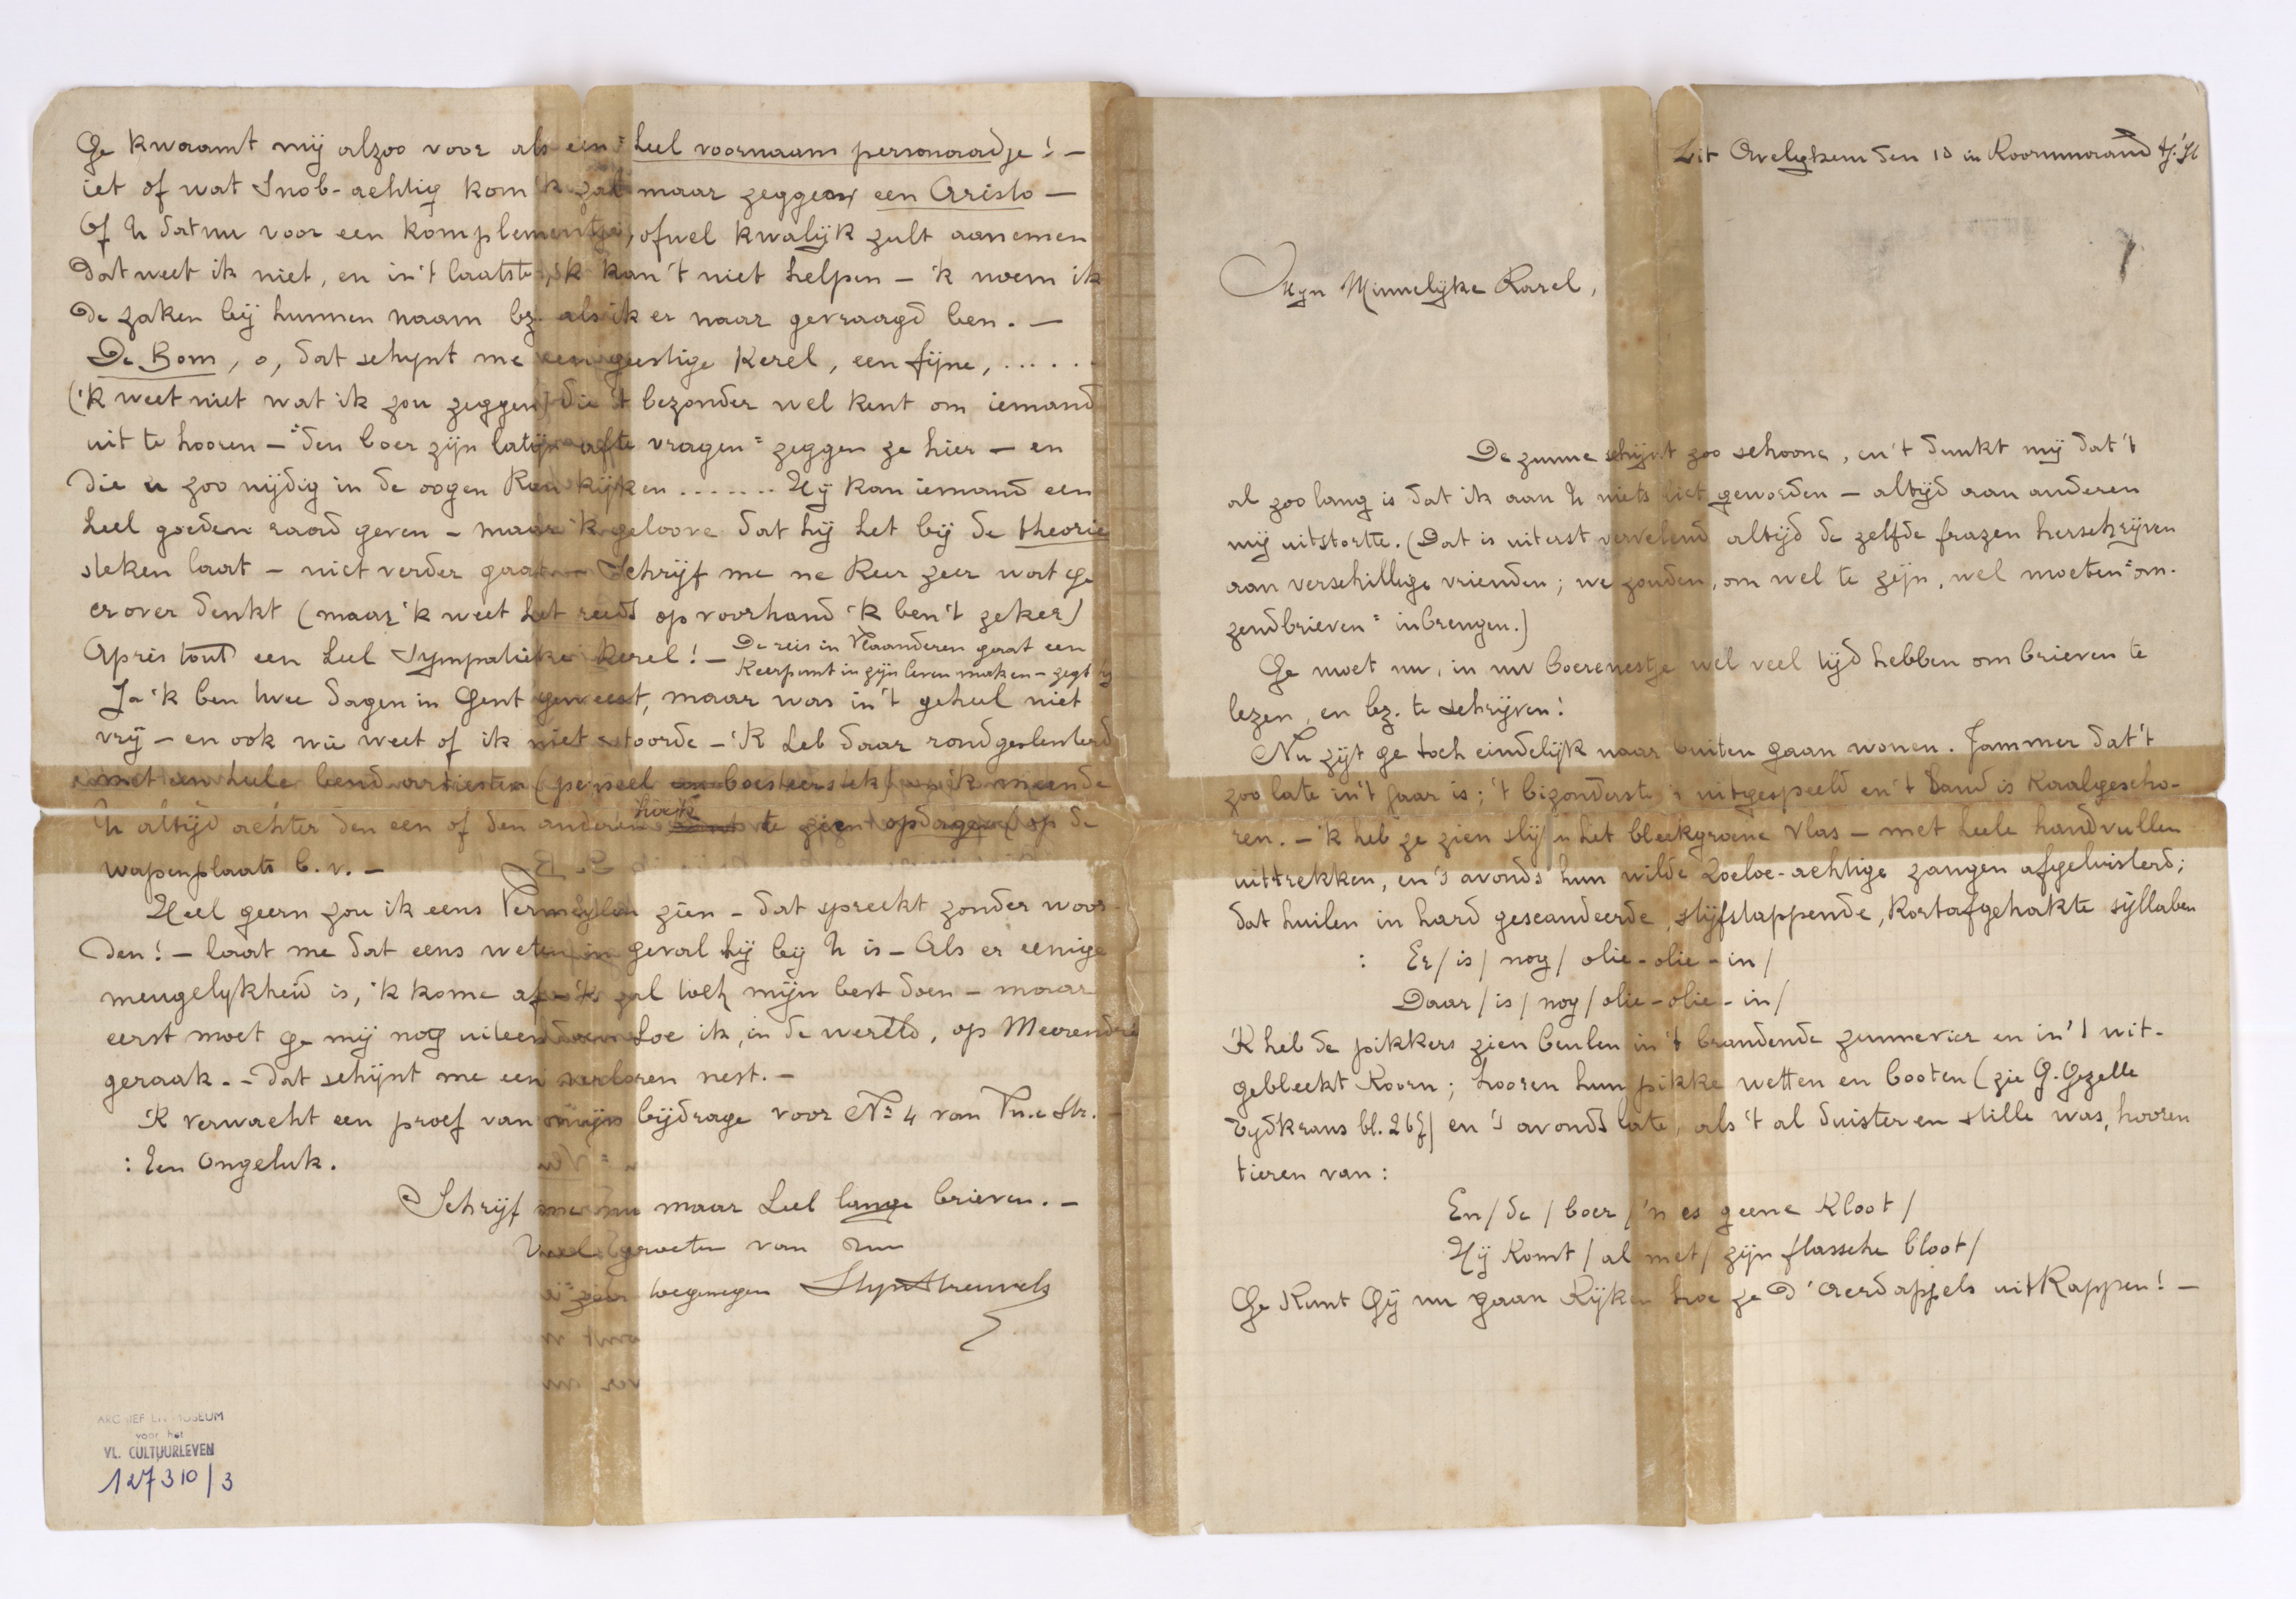 Uit Avelghem den 10 in Koornmaand
Myn Minnelyke Karel,
De zunne schijnt zoo schoone, en 't dunkt mij dat 't
al zoo lang is dat ik aan U niets liet geworden – altijd aan anderen
mij uitstortte. (Dat is uiterst vervelend altijd de zelfde frazen herschrijven
aan verschillige vrienden; we zouden, om wel te zijn, wel moeten "om-
zendbrieven" inbrengen.)
Ge moet nu, in uw boerenestje wel veel tijd hebben om brieven te
lezen, en bz. te schrijven!
Nu zijt ge toch eindelijk naar buiten gaan wonen. Jammer dat 't
zoo late in 't jaar is; 't bizonderste is uitgespeeld en 't land is kaalgescho-
ren. – 'k heb ze zien slijten het bleekgroene vlas – met heele handvullen
uittrekken, en 's avonds hun wilde Zoeloe-achtige zangen afgeluisterd;
dat huilen in hard gescandeerde, stijfstappende, kortafgehakte syllaben
: Er / is / nog / olie - olie - in /
Daar / is / nog / olie - olie - in /
'K heb de pikkers zien beulen in 't brandende zunnevier en in 't uit-
gebleekt koorn; hooren hun pikke wetten en booten (zie G. Gezelle
Tydkrans bl. 26) en 's avonds late, als 't al duister en stille was, hooren
tieren van :
En / de / boer / 'n es geene kloot /
Hij komt / al met / zijn flassche bloot /
Ge kunt Gij nu gaan kijken hoe ze d'aerdappels uitkappen! –
Ge kwaamt mij alzoo voor als een "heel voornaam personaadje! –
iet of wat Snob-achtig kom 'k zal maar zeggen een Aristo –
Of U dat nu voor een komplementje, ofwel kwalijk zult aannemen
dat weet ik niet, en in 't laatste, 'k kan 't niet helpen – 'k noem ik
de zaken bij hunnen naam bz. als ik er naar gevraagd ben. –
De Bom, o, dat schynt me een geestige kerel, een fijne, ......
('k weet niet wat ik zou zeggen) die 't bezonder wel kent om iemand
uit te hooren – "den boer zijn latijn afte vragen" zeggen ze hier – en
die u zoo nijdig in de oogen kan kijken ....... Hij kan iemand een
heel goeden raad geven – maar 'k geloove dat hij het bij de theorie
steken laat – niet verder gaat – Schrijf me ne keer zeer wat ge
erover denkt (maar 'k weet het reeds op voorhand 'k ben 't zeker)
Après tout een heel sympatieke kerel! – De reis in Vlaanderen gaat een
keerpunt in zijn leven maken – zegt hij
Ja 'k ben twee dagen in Gent geweest, maar was in 't geheel niet
vrij – en ook wie weet of ik niet stoorde – 'K heb daar rondgeslenterd
met een heele bend artiesten (penseel boesteerstek) 'k meende
U altijd achter den een of den anderen hoek te zien opdagen (op de
wapenplaats b.v. –
Heel geern zou ik eens Vermeylen zien – dat spreekt zonder woor-
den! – laat me dat eens weten in geval hij bij U is – Als er eenige
meugelykheid is, 'k kome af – 'k zal toch mijn best doen – maar
eerst moet ge mij nog uiteendoen hoe ik, in de wereld, op Meerendré
geraak. – dat schijnt me een verloren nest. –
'K verwacht een proef van mijn bijdrage voor Nr 4 van Vn. e Str. –
: Een Ongeluk.
Schrijf me nu maar heel lange brieven. –
Veel groeten van den
u zeer toegenegen Stijn Streuvels
ARCHIEF EN MUSEUM
voor het
VL. CULTUURLEVEN
127310/3